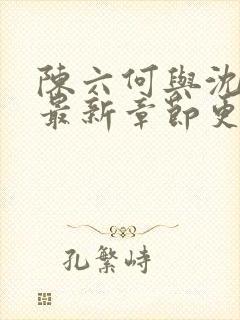 陳六何與沈
最新章節更
孔繁峙